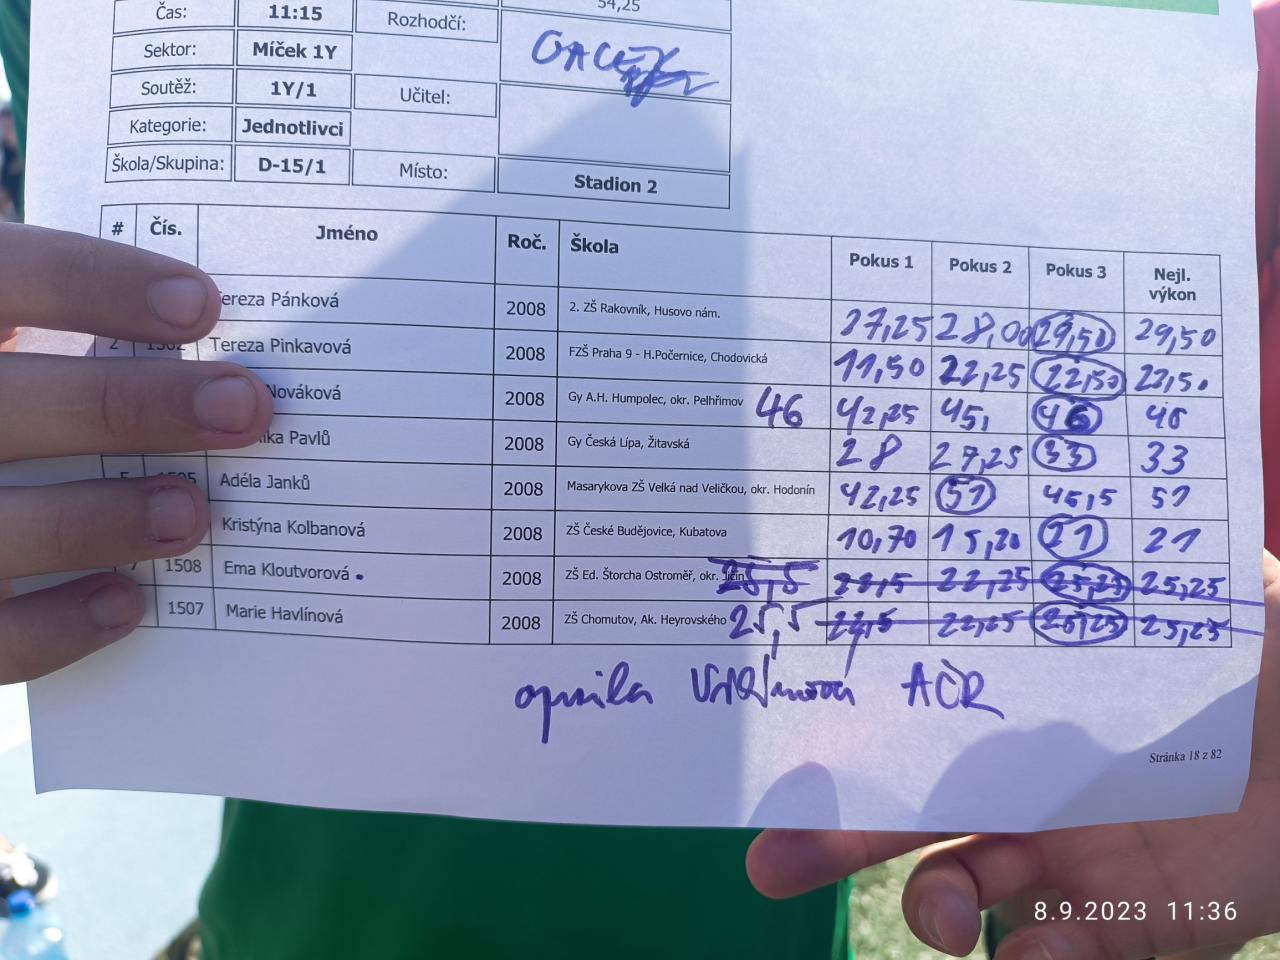 54,25
Čas: 11:15 Rozhodčí:
Sektor: Míček 1Y
Soutěž: 1Y/1 Učitel:
Kategorie: Jednotlivci
Škola/Skupina: D-15/1 Místo: Stadion 2
# Čís. Jméno Roč. Škola Pokus 1 Pokus 2 Pokus 3 Nejl. výkon
Tereza Pánková 2008 2. ZŠ Rakovník, Husovo nám. 27,25 28,00 29,50 29,50
2 1502 Tereza Pinkavová 2008 FZŠ Praha 9 - H.Počernice, Chodovická 11,50 22,25 22,50 22,50
Nováková 2008 Gy A.H. Humpolec, okr. Pelhřimov 46 42,25 45, 46 46
ika Pavlů 2008 Gy Česká Lípa, Žitavská 28 27,25 33 33
5 1505 Adéla Janků 2008 Masarykova ZŠ Velká nad Veličkou, okr. Hodonín 42,25 51 46,5 51
Kristýna Kolbanová 2008 ZŠ České Budějovice, Kubatova 10,70 15,20 21 21
7 1508 Ema Kloutvorová 2008 ZŠ Ed. Štorcha Ostroměř, okr. Jičín 25,5 22,25 25,25 25,25
1507 Marie Havlínová 2008 ZŠ Chomutov, Ak. Heyrovského 25,5 22,5 22,25 25,25 25,25
AČR
Stránka 18 z 82
8.9.2023 11:36